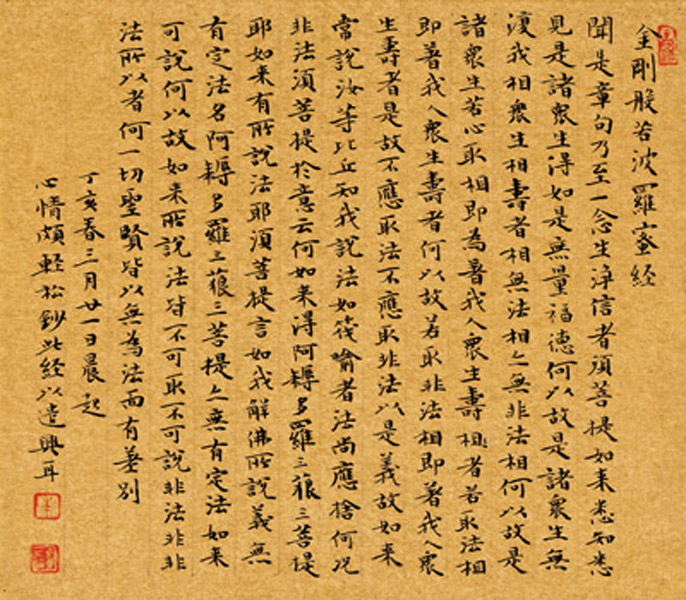 金剛般若波羅蜜經
聞是章句乃至一念生淨信者須菩提如来悉知悉
見是諸衆生得如是無量福德何以故是諸衆生無
復我相衆生相壽者相無法相亦無非法相何以故是
諸衆生若心取相即為著我人衆生壽相者若取法相
即著我人衆生壽者何以故若取非法相即著我人衆
生壽者是故不應取法不應取非法以是義故如来
常說汝等比丘知我說法如筏喻者法尚應捨何況
非法須菩提於意云何如来得阿耨多羅三藐三菩提
耶如来有所說法耶須菩提言如我解佛所說義無
有定法名阿耨多羅三藐三菩提亦無有定法如来
可說何以故如来所說法皆不可取不可說非法非非
法所以者何一切聖賢皆以無為法而有差別
丁亥春三月廿一日晨起
心情頗輕松鈔此經以遣興耳